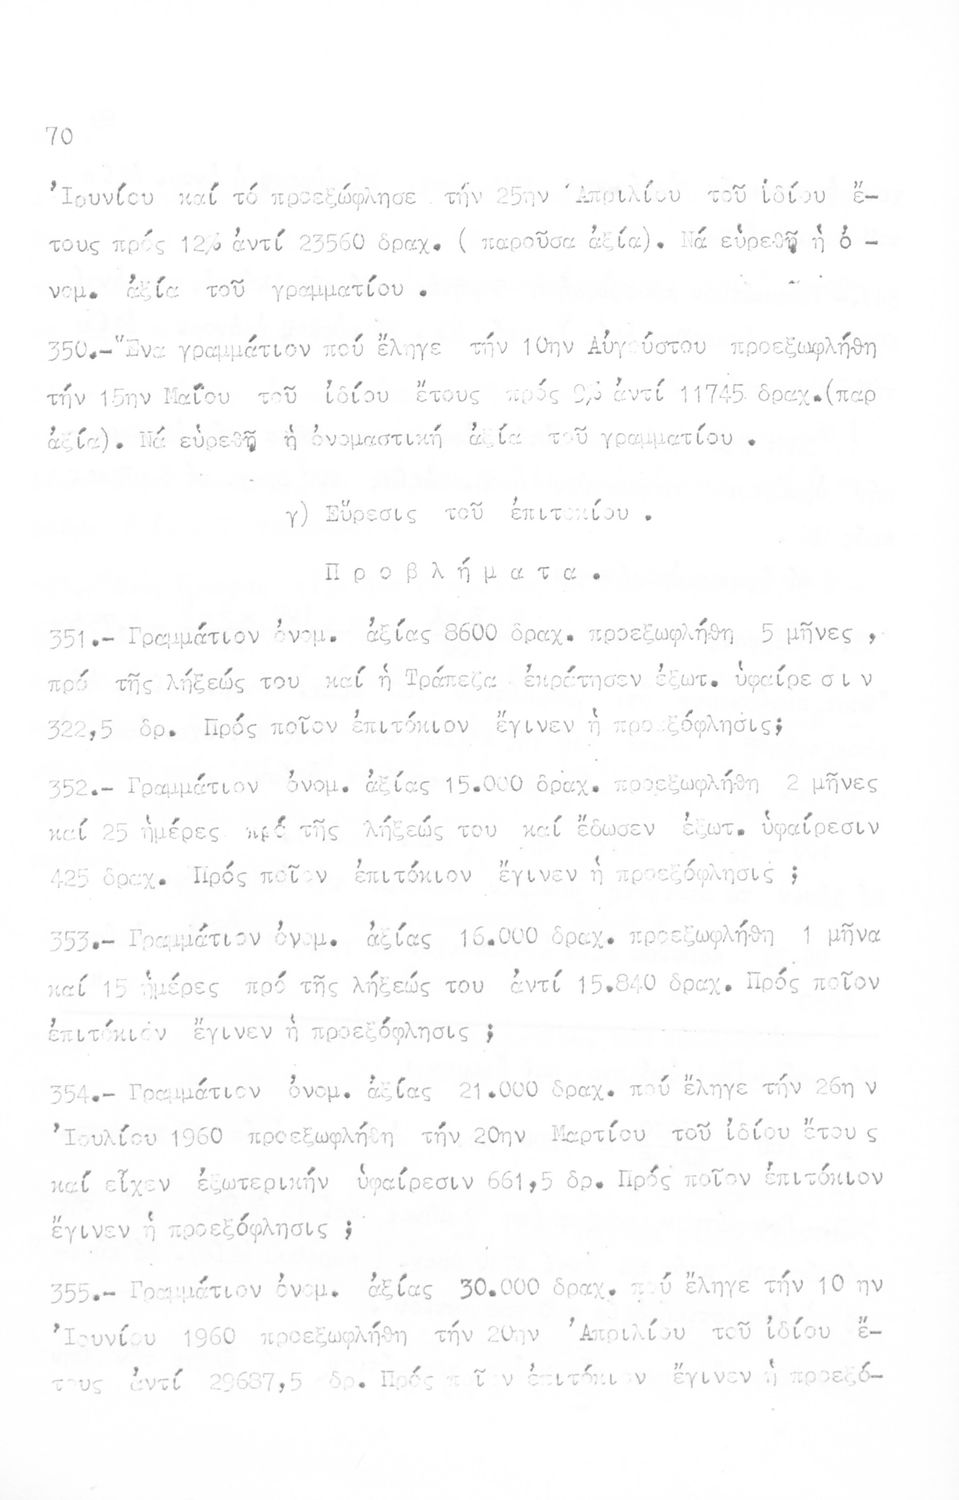 70
Ἰουνίου καί τό προεξώφλησε τήν 25ην Ἀπριλίου τοῦ ἰδίου ἔ-
τους πρός 12% ἀντί 23560 δραχ. ( παροῦσα ἀξία). Νά εὑρεθῇ ἡ ὀ -
νομ. ἀξία τοῦ γραμματίου .
350.- Ἕνα γραμμάτιον πού ἔληγε τήν 10ην Αὐγούστου προεξωφλήθη
τήν 15ην Μαΐου τοῦ ἰδίου ἔτους πρός 9% ἀντί 11745 δραχ.(παρ
ἀξία). Νά εὑρεθῇ ἡ ὀνομαστική ἀξία τοῦ γραμματίου .
γ) Εὕρεσις τοῦ ἐπιτοκίου .
Π ρ ο β λ ή μ α τ α .
351.- Γραμμάτιον ὀνομ. ἀξίας 8600 δραχ. προεξωφλήθη 5 μῆνες ,
πρό τῆς λήξεώς του καί ἡ Τράπεζα ἐκράτησεν ἐξωτ. ὑφαίρε σ ι ν
322,5 δρ. Πρός ποῖον ἐπιτόκιον ἔγινεν ἡ προεξόφλησις;
352.- Γραμμάτιον ὀνομ. ἀξίας 15.000 δραχ. προεξωφλήθη 2 μῆνες
καί 25 ἡμέρες πρό τῆς λήξεώς του καί ἔδωσεν ἐξωτ. ὑφαίρεσιν
425 δραχ. Πρός ποῖον ἐπιτόκιον ἔγινεν ἡ προεξόφλησις ;
353.- Γραμμάτιον ὀνομ. ἀξίας 16.000 δραχ. προεξωφλήθη 1 μῆνα
καί 15 ἡμέρες πρό τῆς λήξεώς του ἀντί 15.840 δραχ. Πρός ποῖον
ἐπιτόκιόν ἔγινεν ἡ προεξόφλησις ;
354.- Γραμμάτιον ὀνομ. ἀξίας 21.000 δραχ. πού ἔληγε τήν 26η ν
Ἰουλίου 1960 προεξωφλήθη τήν 20ην Μαρτίου τοῦ ἰδίου ἔτου ς
καί εἶχεν ἐξωτερικήν ὑφαίρεσιν 661,5 δρ. Πρός ποῖον ἐπιτόκιον
ἔγινεν ἡ προεξόφλησις ;
355.- Γραμμάτιον ὀνομ. ἀξίας 30.000 δραχ. πού ἔληγε τήν 10 ην
Ἰουνίου 1960 προεξωφλήθη τήν 20ην Ἀπριλίου τοῦ ἰδίου ἔ-
τους ἀντί 29687,5 δρ. Πρός ποῖον ἐπιτόκιον ἔγινεν ἡ προεξό-